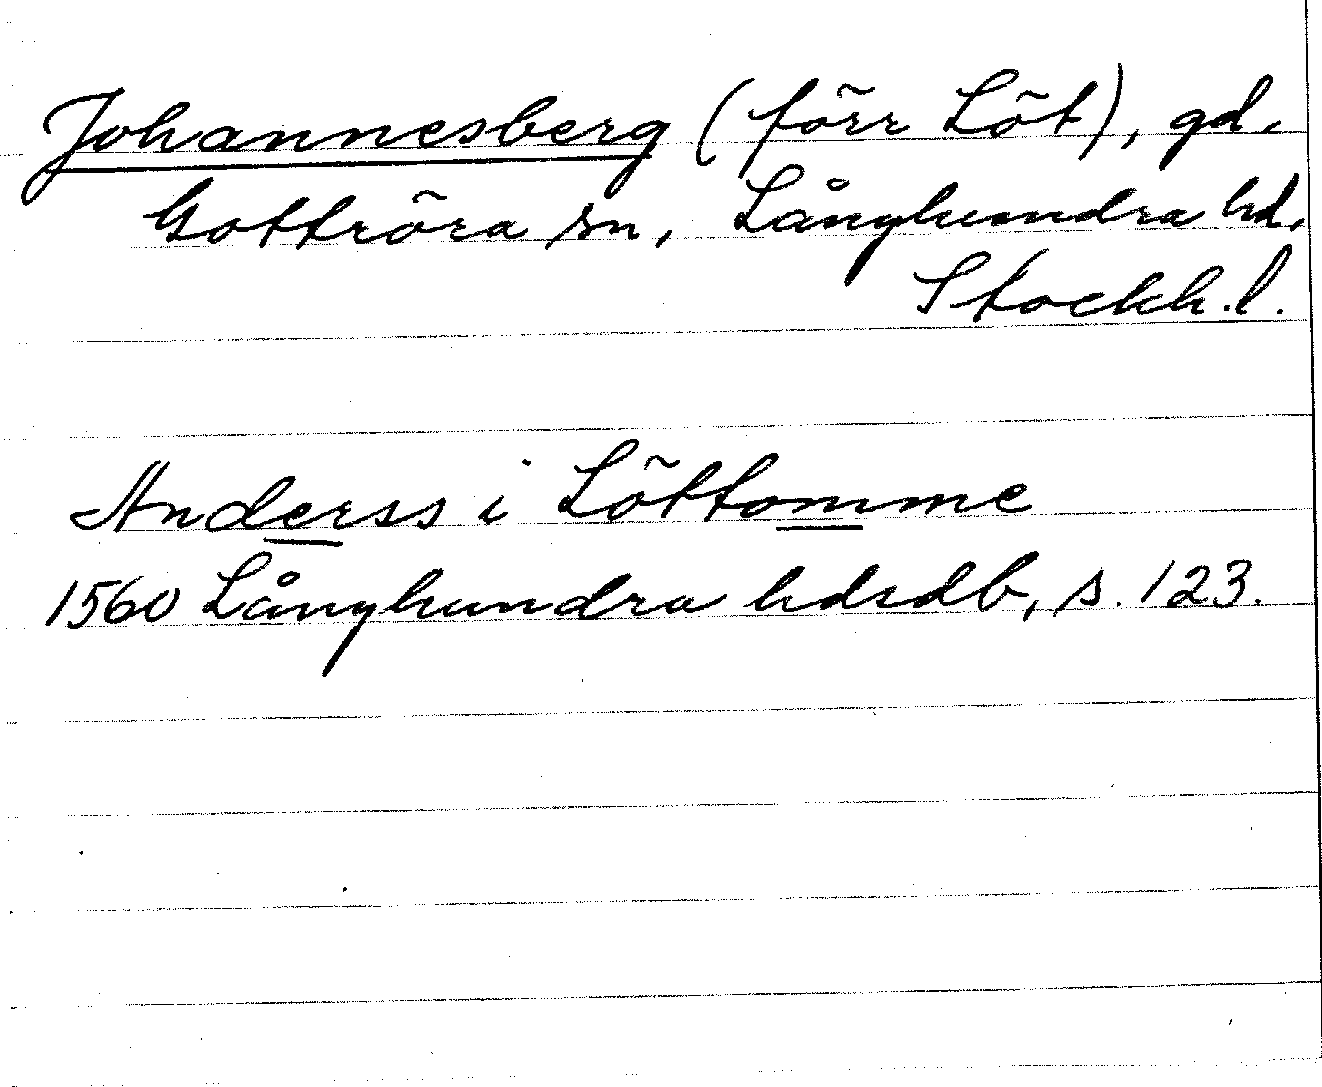 Johannesberg (förr Löt), gd.
Gottröra sn, Långhundra hd,
Stockh.l.
Anderss i Löttomme
1560 Långhundra hdsdb, s. 123.